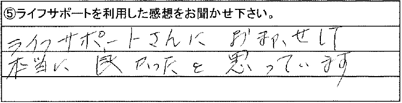 ⑤ライフサポートを利用した感想をお聞かせ下さい。
ライフサポートさんに おまかせして
本当に 良かったと 思っています